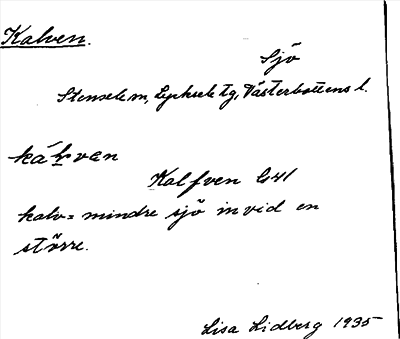 Kalven.
Sjö
Stensele sn, Lycksele tg, Västerbottens l.
káḷvan
Kalfven G41
kalv = mindre sjö invid en
större.
Lisa Lidberg 1935